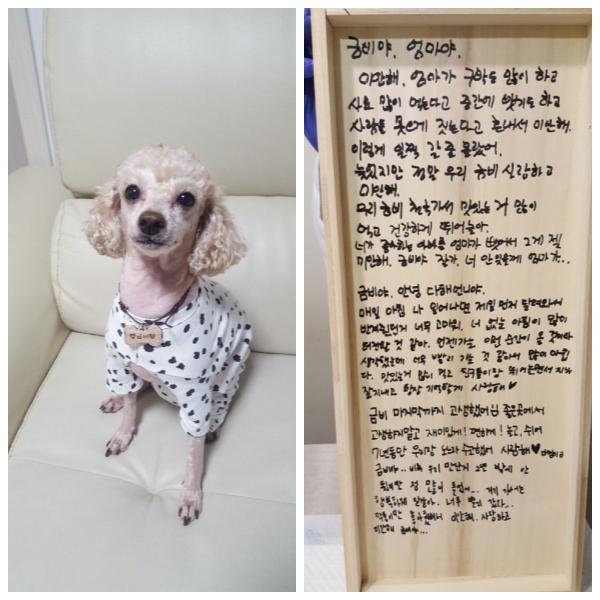 금비야, 엄마야,
미안해, 엄마가 구박도 많이 하고
사료 많이 먹는다고 중간에 뺏기도 하고
사람을 못보게 짓는다고 혼내서 미안해.
이렇게 일찍 갈줄 몰랐어.
늦었지만 정말 우리 금비 사랑하고
미안해.
우리 금비 천국가서 맛있는거 많이
먹고 건강하게 뛰어놀아.
너가 좋아하는 엄마가 뺏어서 그게 젤
미안해. 금비야 잘가, 너 안잊을께 엄마가..
금비야, 안녕 다해언니야.
매일 아침 나 일어나면 제일 먼저 달려와서
반겨준던거 너무 고마워. 너 없는 아침이 많이
허전할 것 같아. 언젠가는 이런 순간이 올 거라
생각했는데 너무 빨리 가는 것 같아서 많이 아쉽
다. 맛있는거 많이 먹고 친구들이랑 뛰어놀면서
잘지내고 항상 기억할게 사랑해♥
금비 마지막까지 고생했어 좋은곳에서
고생하지말고 재미있게! 편하게! 놀고, 쉬어
7년동안 우리랑 노느라 수고했어 사랑해♥
금비야.. 비록 우리 만난지 2년 밖에 안
됐지만 정 많이 들었어... 거기 가서는
행복하게 잘살아. 너무 빨리 갔다..
미안해